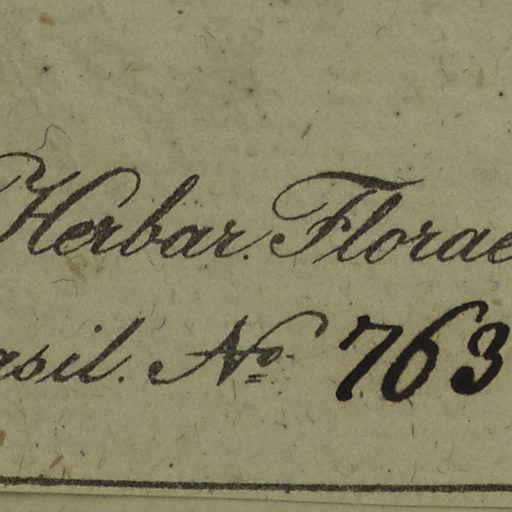 Herbar. Florae
asil. No. 763